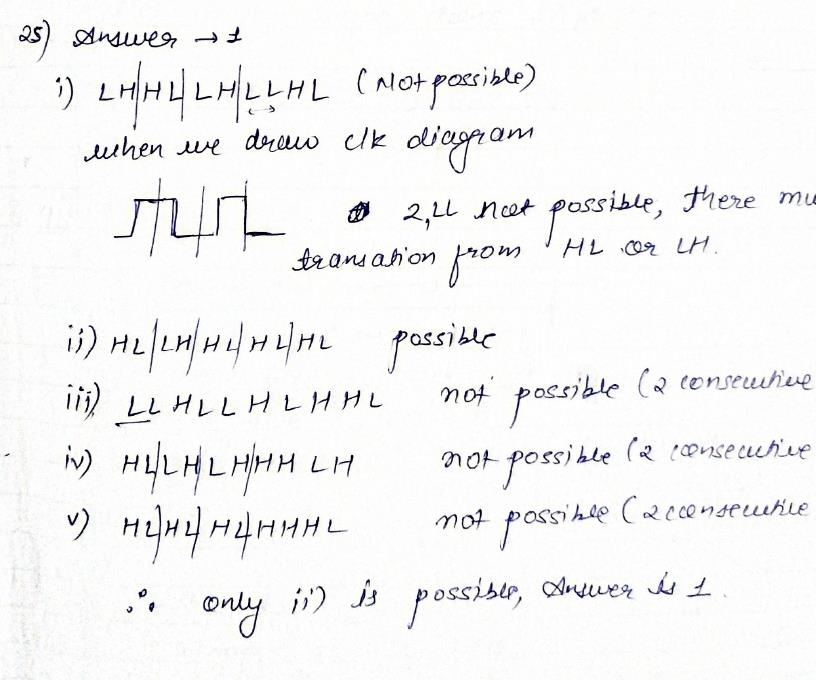 25) Answer → 1
i) LH|HL|LH|LLHL (Not possible)
when we draw clk diagram
2,LL not possible, there mu
transation from HL or LH.
ii) HL|LH|HL|HL|HL possible
iii) LL HLL H L H HL not possible (2 consecutive
iv) HL|LH|LH|HH LH not possible (2 consecutive
v) HL|HL|HL|HHHL not possible (2 consecutive
∴ only ii) is possible, Answer is 1.